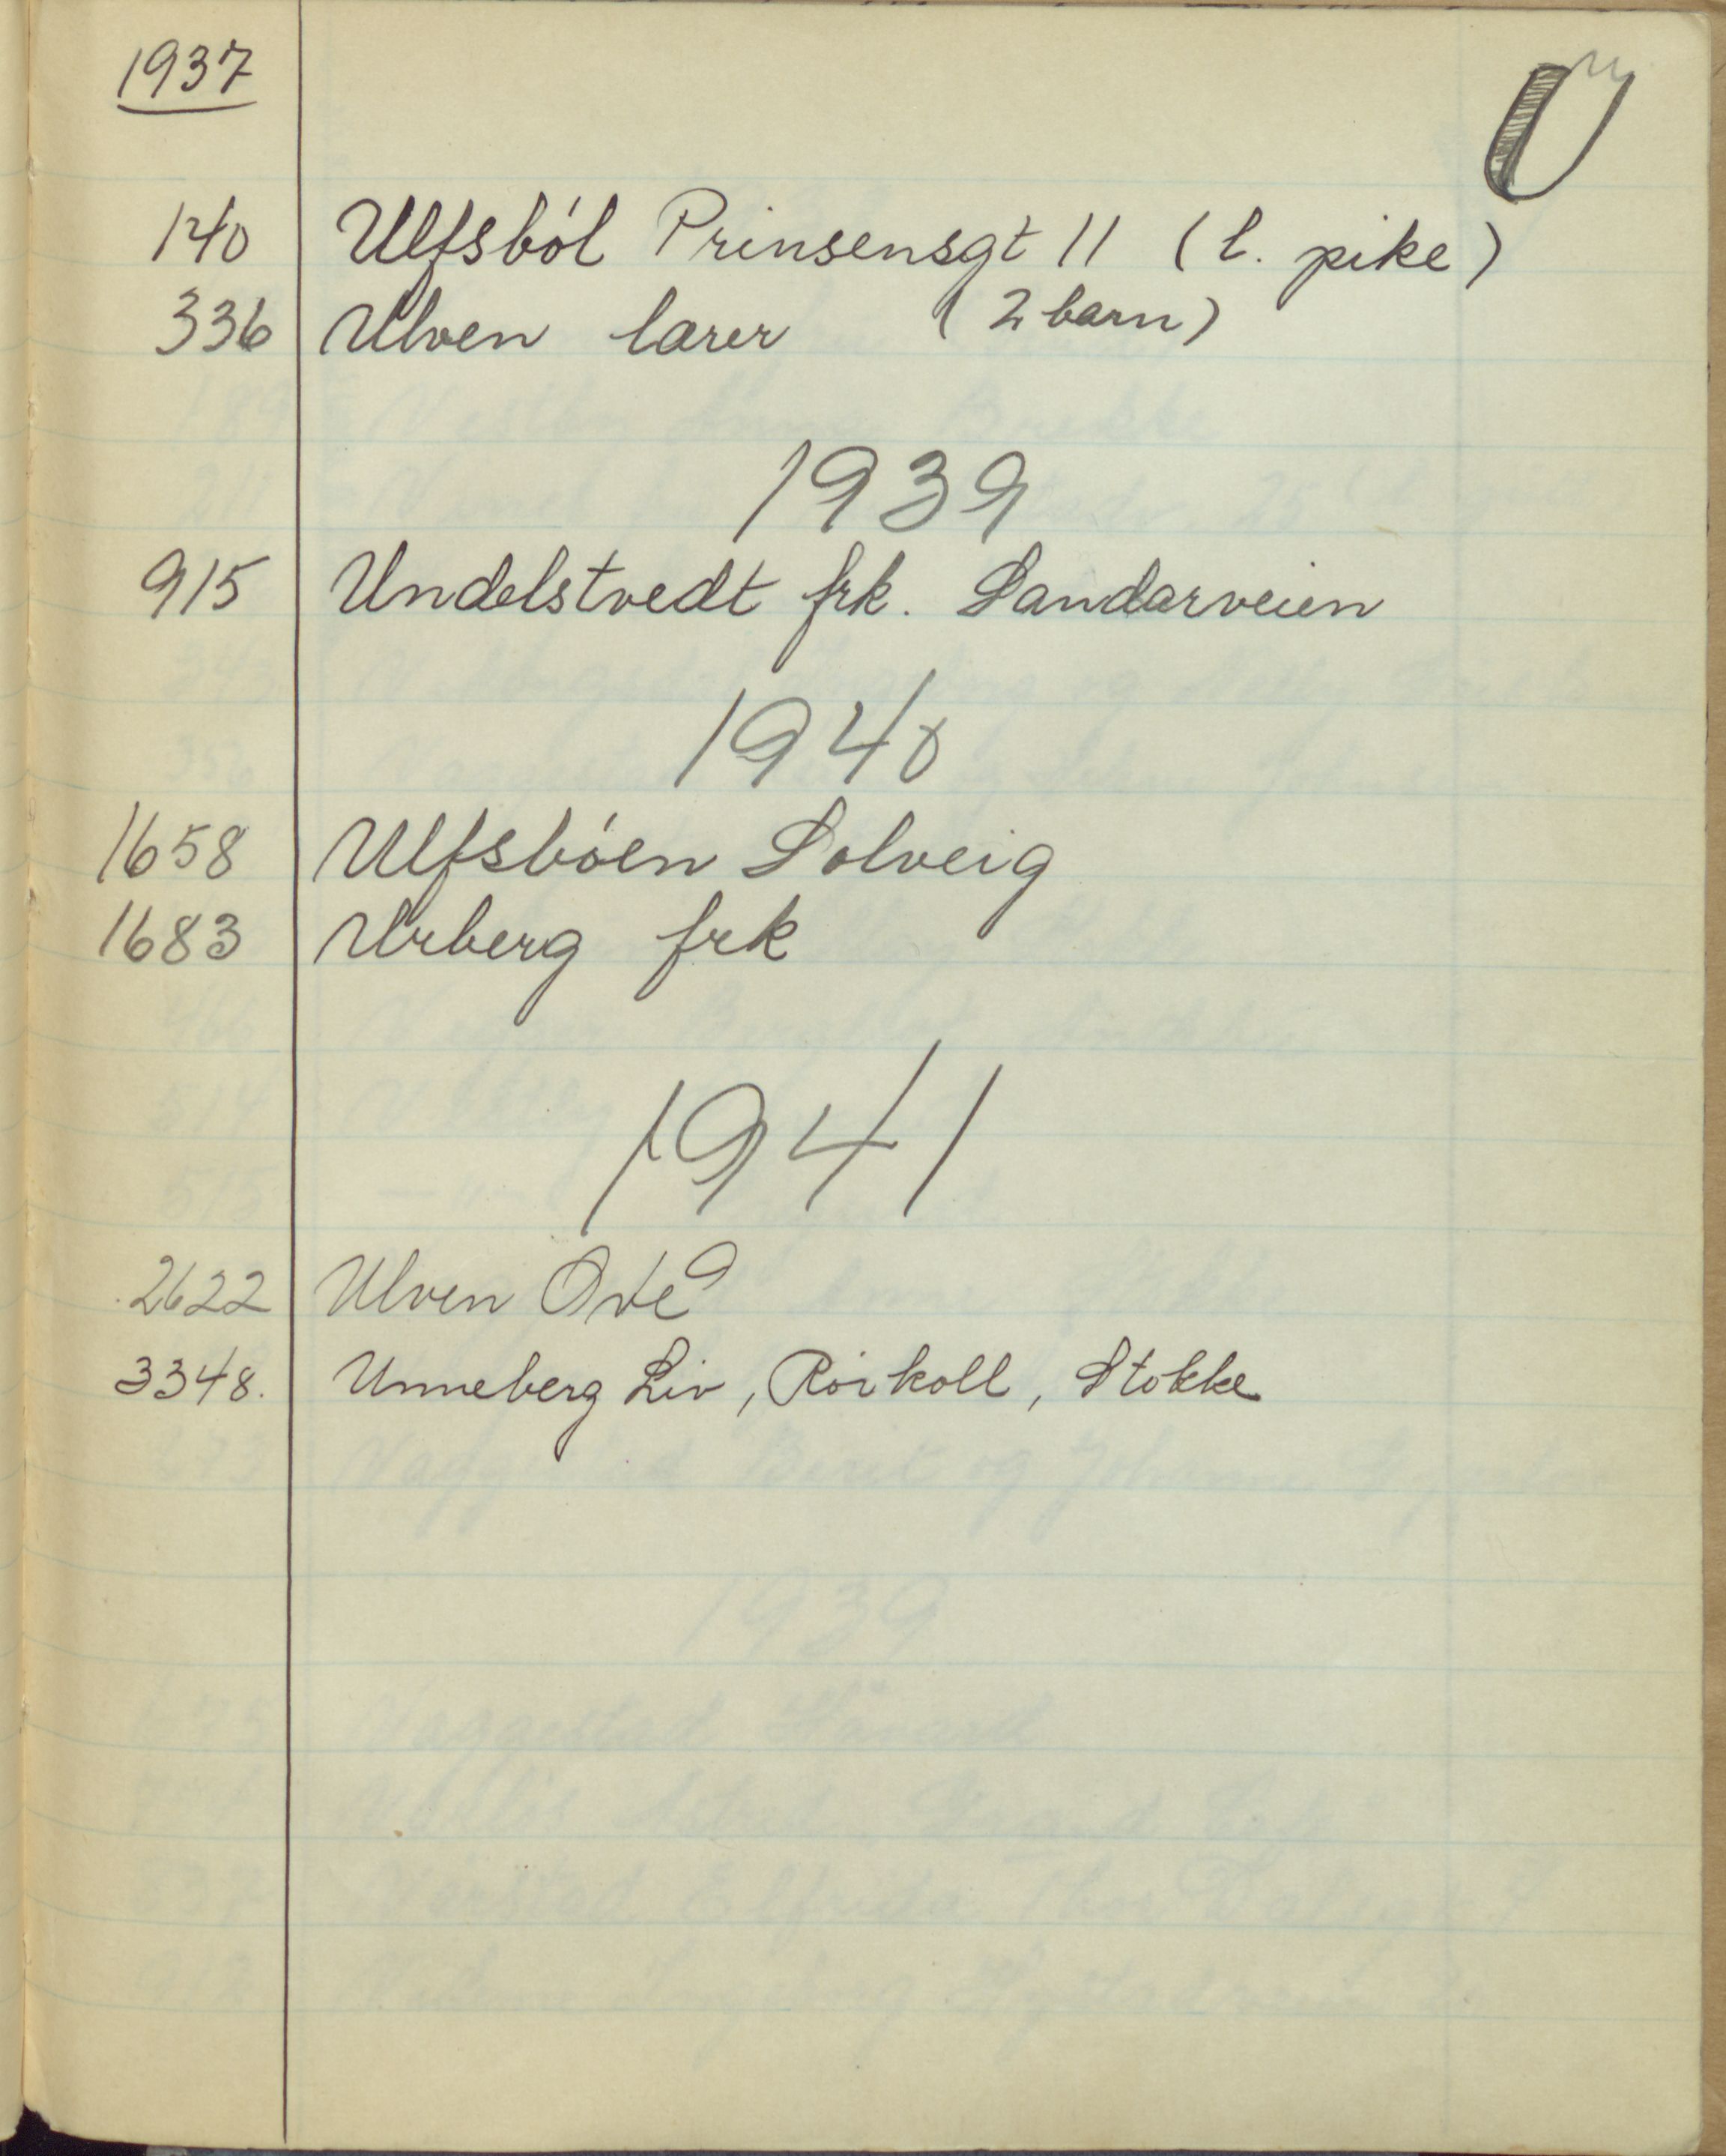 1937
U
140 Ulfsból Prinsensgt 11 (l. pike)
336 Ulven lærer (2 barn)
1939
915 Undelstvedt frk. Sandarveien
1940
1658 Ulfsbóen Solveig
1683 Urberg frk
1941
2622 Ulven
3348. Unneberg Liv, Róvkoll, Stokke